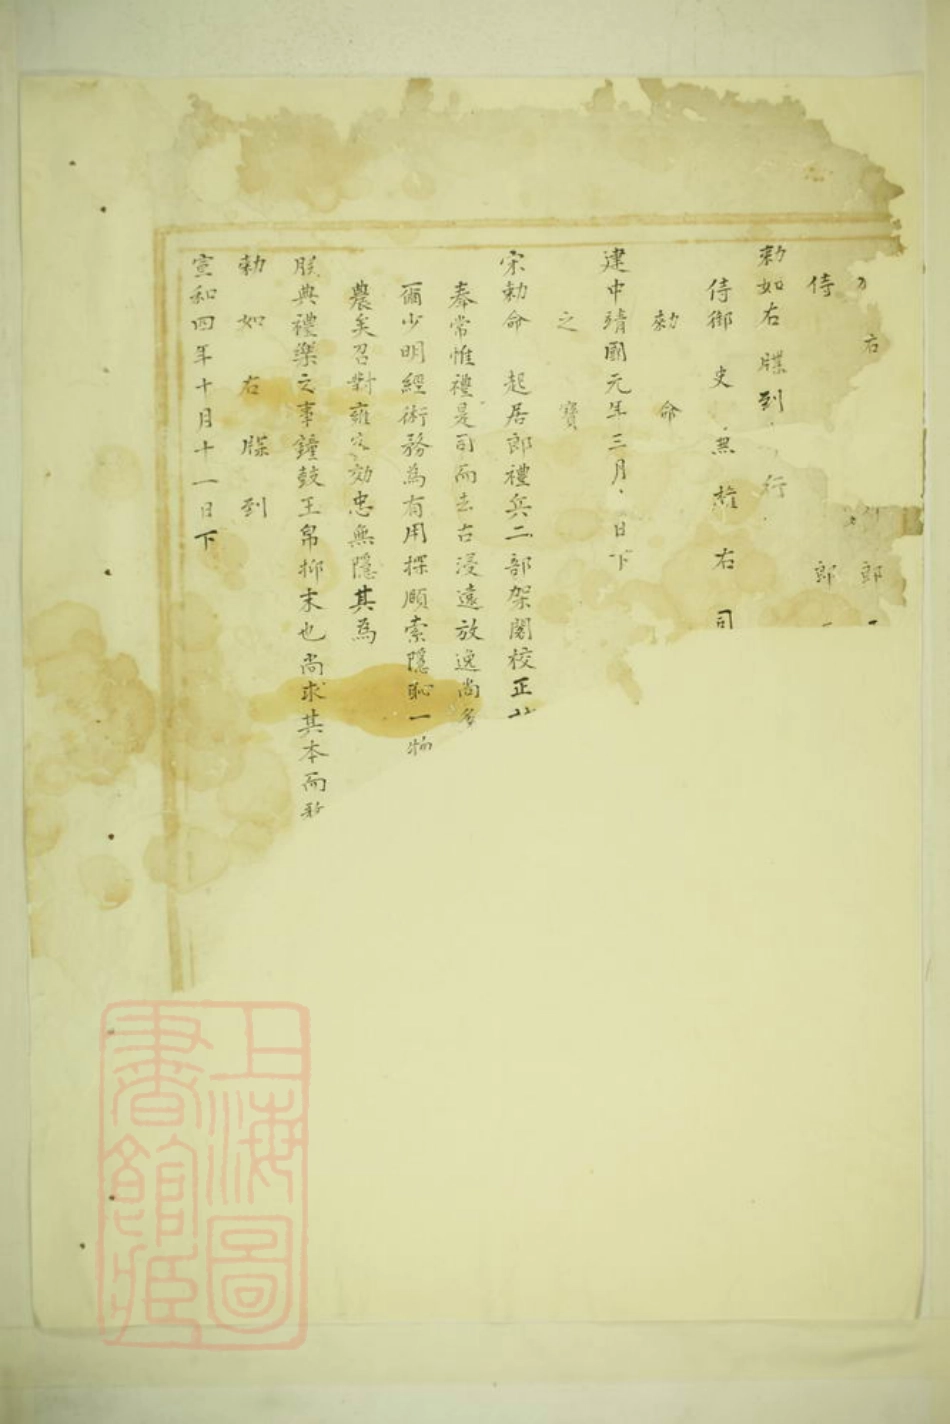 右 郎
侍 郎
勅如右牒到 行
侍御史 無 權 右 司
勅 命
之 寶
建中靖國元年三月 日下
宋勅命 起居郎禮兵二部架閣校正
奉常惟禮是司而去古浸遠放逸尚多
爾少明經術務為有用探頤索隱恥一物
農矣召對雍 効忠無隱其為
朕典禮樂之事鐘鼓王帛抑末也尚求其本而
勅如右牒到
宣和四年十月十一日下
上海圖
書館藏